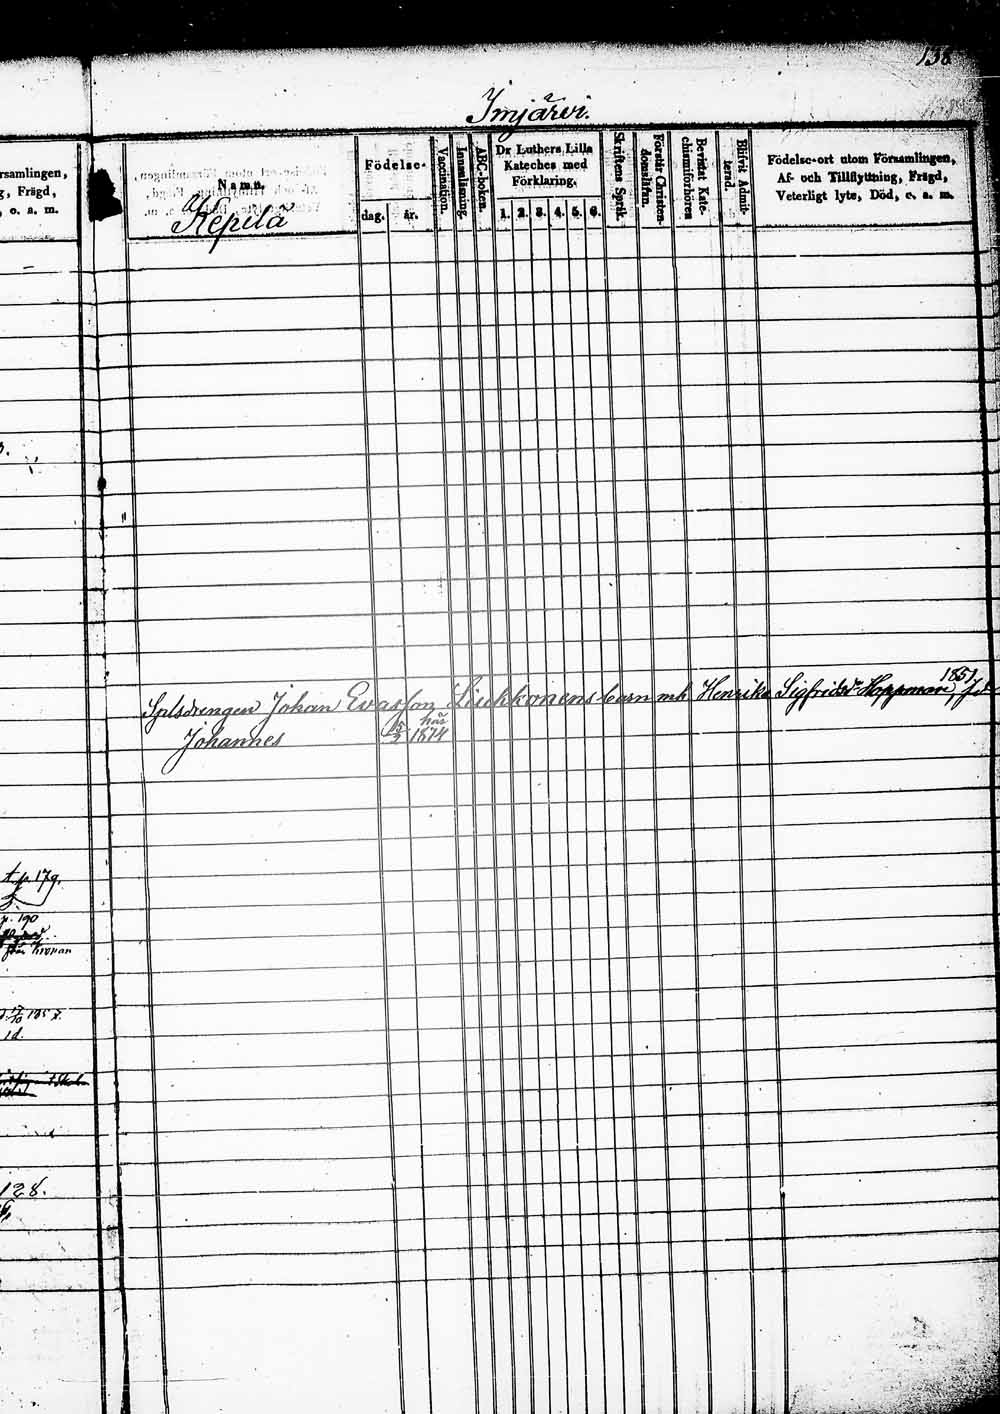 138
Imjärvi.
rsamlingen,
g, Frägd,
, o. a. m.
Namn.
Födelse-
dag. år.
Vaccination.
Innanläsning.
ABC-boken.
Dr Luthers Lilla
Kateches med
Förklaring.
1. 2. 3. 4. 5. 6.
Skriftens Språk.
Förstår Christen-
domsläran.
Bevistat Kate-
chismiförhören
Blifvit Admit-
terad.
Födelse-ort utom Församlingen,
Af- och Tillflyttning, Frägd,
Veterligt lyte, Död, o. a. m.
Kepilä
1851
Johan Evasson Liukkonens barn m h Henrika Sigfridsdr Hoppman
här
Johannes 15/2 1874
t. p. 179.
p. 190
från Kronan
1d.
128.